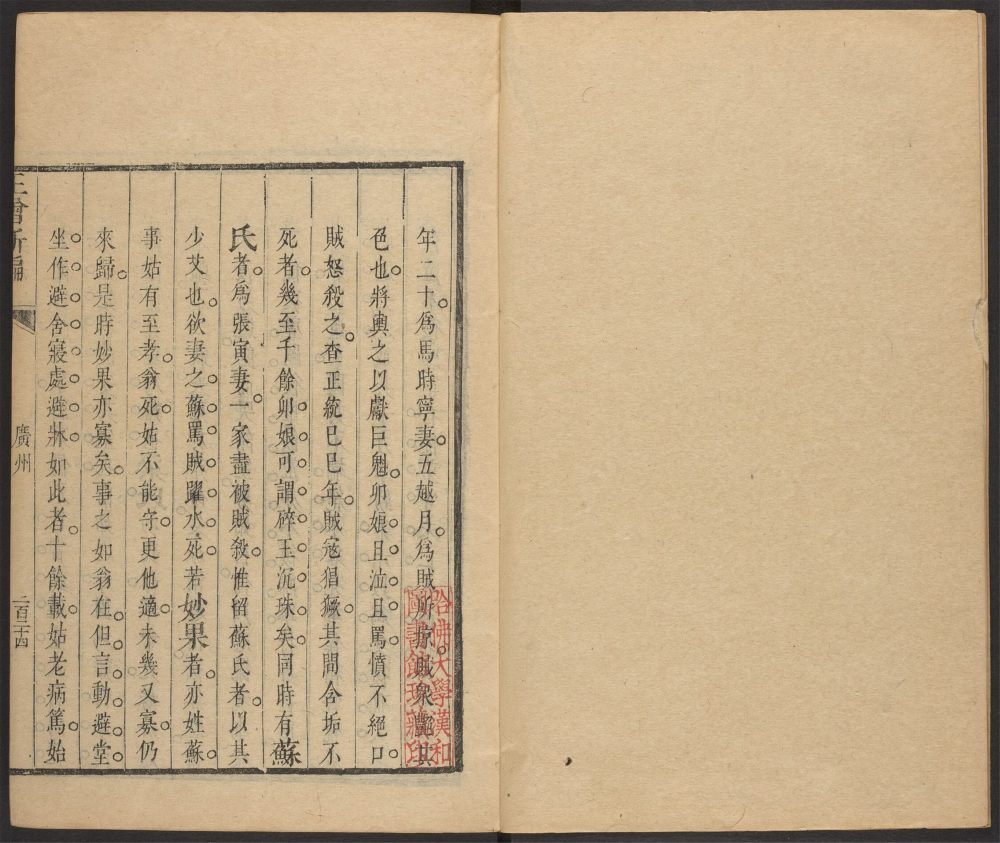 年二十爲馬時寧妻五越月爲賊所掠賊衆艷其
色也將輿之以獻巨魁卯娘且泣且罵憤不絕口
賊怒殺之查正統巳巳年賊寇猖獗其間含垢不
死者幾至千餘卯娘可謂碎玉沉珠矣同時有蘇
氏者爲張寅妻一家盡被賊殺惟留蘇氏者以其
少艾也欲妻之蘇罵賊躍水死若妙果者亦姓蘇
事姑有至孝翁死姑不能守更他適未幾又寡仍
來歸是時妙果亦寡矣事之如翁在但言動避堂
坐作避舍寢處避牀如此者十餘載姑老病篤始
廣州
二百三十四
哈佛大學漢和
圖書館珍藏印